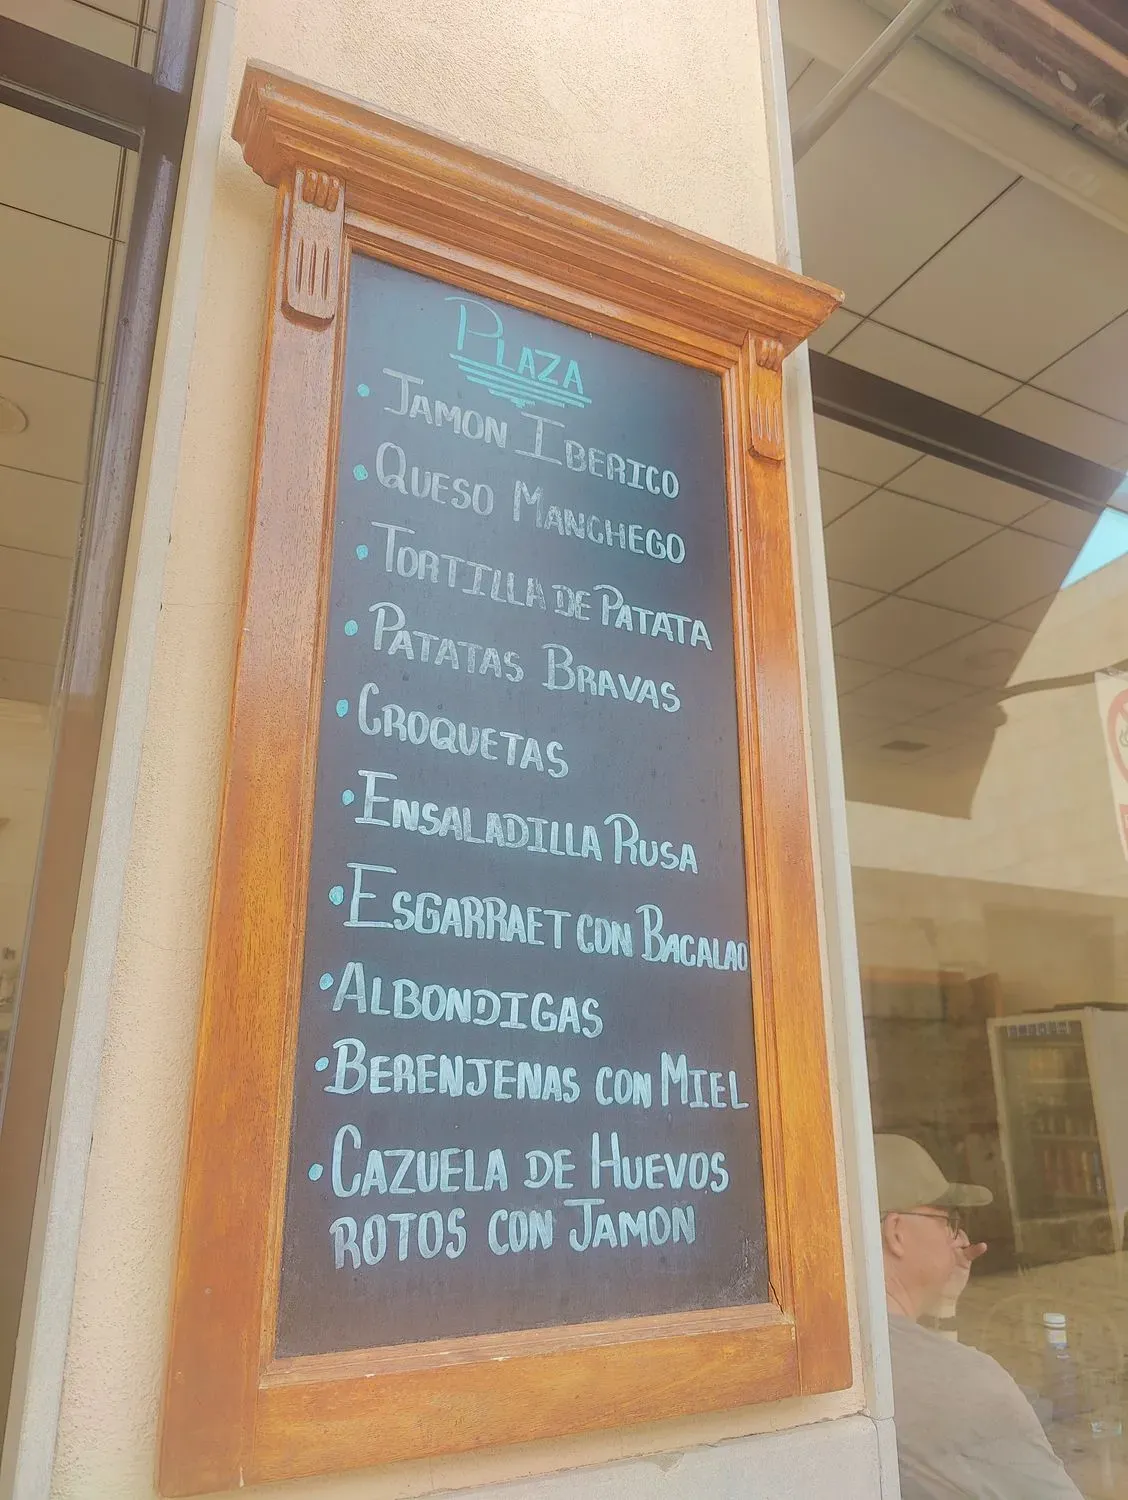 PLAZA
• JAMON IBERICO
• QUESO MANCHEGO
• TORTILLA DE PATATA
• PATATAS BRAVAS
• CROQUETAS
• ENSALADILLA RUSA
• ESGARRAET CON BACALAO
• ALBONDIGAS
• BERENJENAS CON MIEL
• CAZUELA DE HUEVOS
ROTOS CON JAMON